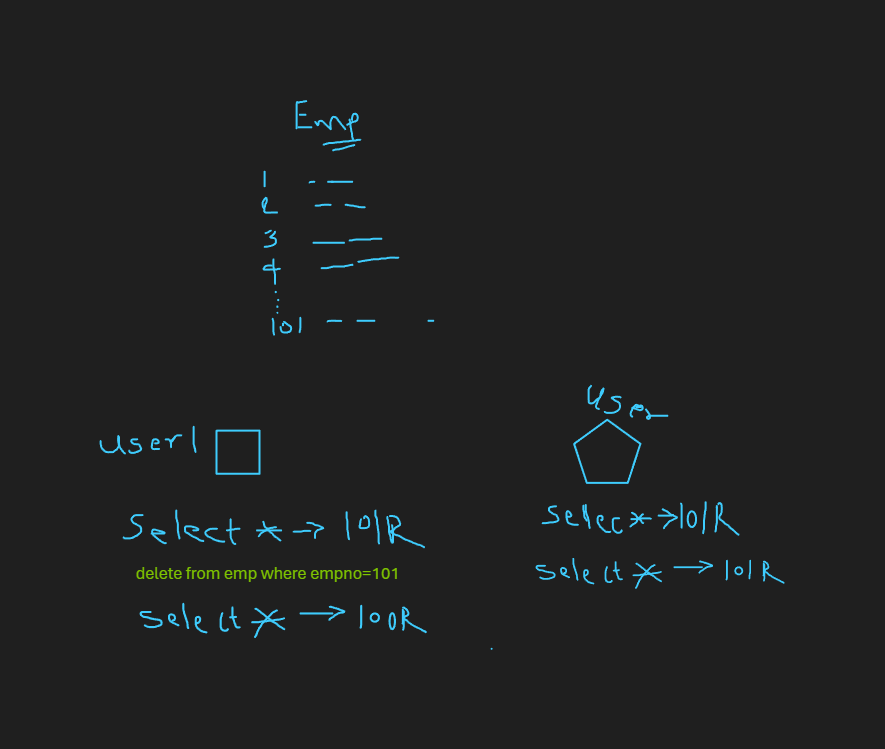 Emp
1
2
3
4
101
user1
Select * → 101R
delete from emp where empno=101
Select * → 100R
User
Selec * → 101R
Select * → 101R